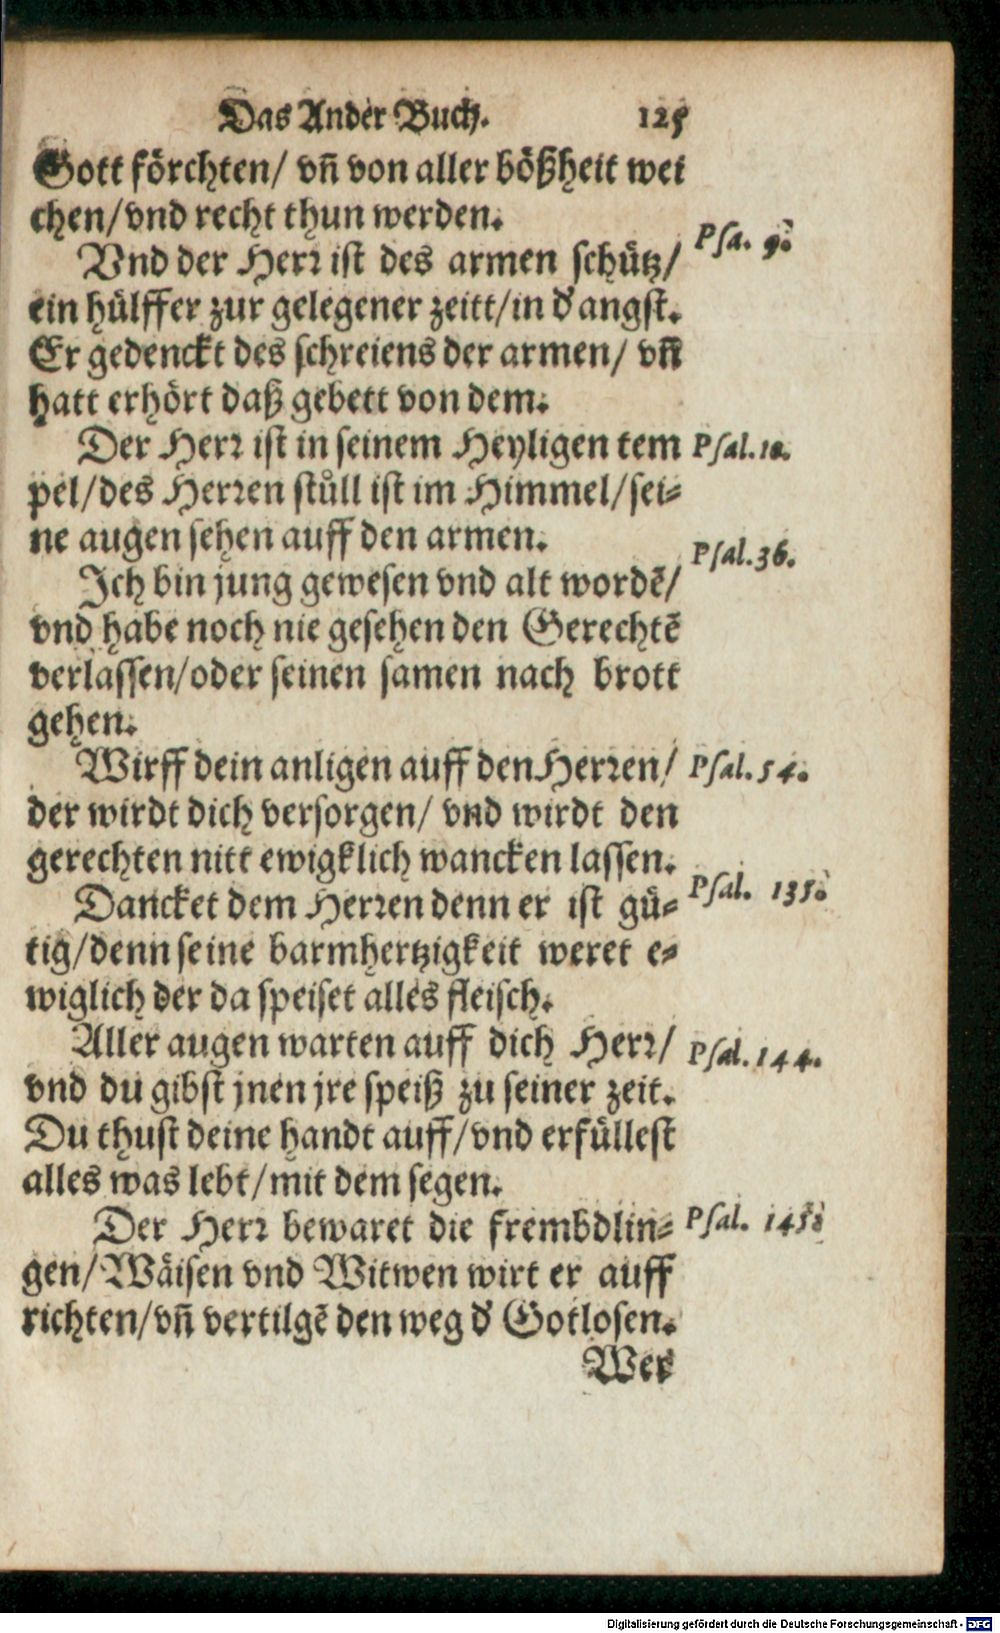 Das Ander Buch. 125
Gott förchten/ vñ von aller bößheit wei
chen/vnd recht thun werden.
Vnd der Herr ist des armen schütz/ Psa. 9.
ein hülffer zur gelegener zeitt/in d' angst.
Er gedenckt des schreiens der armen/ vñ
hatt erhört daß gebett von dem.
Der Herr ist in seinem Heyligen tem Psal.10.
pel/des Herren stůll ist im Himmel/sei-
ne augen sehen auff den armen.
Ich bin jung gewesen vnd alt wordẽ/ Psal.36.
vnd habe noch nie gesehen den Gerechtẽ
verlassen/oder seinen samen nach brott
gehen.
Wirff dein anligen auff den Herren/ Psal.54.
der wirdt dich versorgen/ vnd wirdt den
gerechten nitt ewigklich wancken lassen.
Dancket dem Herren denn er ist gü- Psal. 135.
tig/denn seine barmhertzigkeit weret e-
wiglich der da speiset alles fleisch.
Aller augen warten auff dich Herr/ Psal.144.
vnd du gibst jnen jre speiß zu seiner zeit.
Du thust deine handt auff/vnd erfüllest
alles was lebt/mit dem segen.
Der Herr bewaret die frembdlin- Psal. 145.
gen/Wäisen vnd Witwen wirt er auff
richten/vñ vertilgẽ den weg d' Gotlosen.
Wer
Digitalisierung gefördert durch die Deutsche Forschungsgemeinschaft - DFG